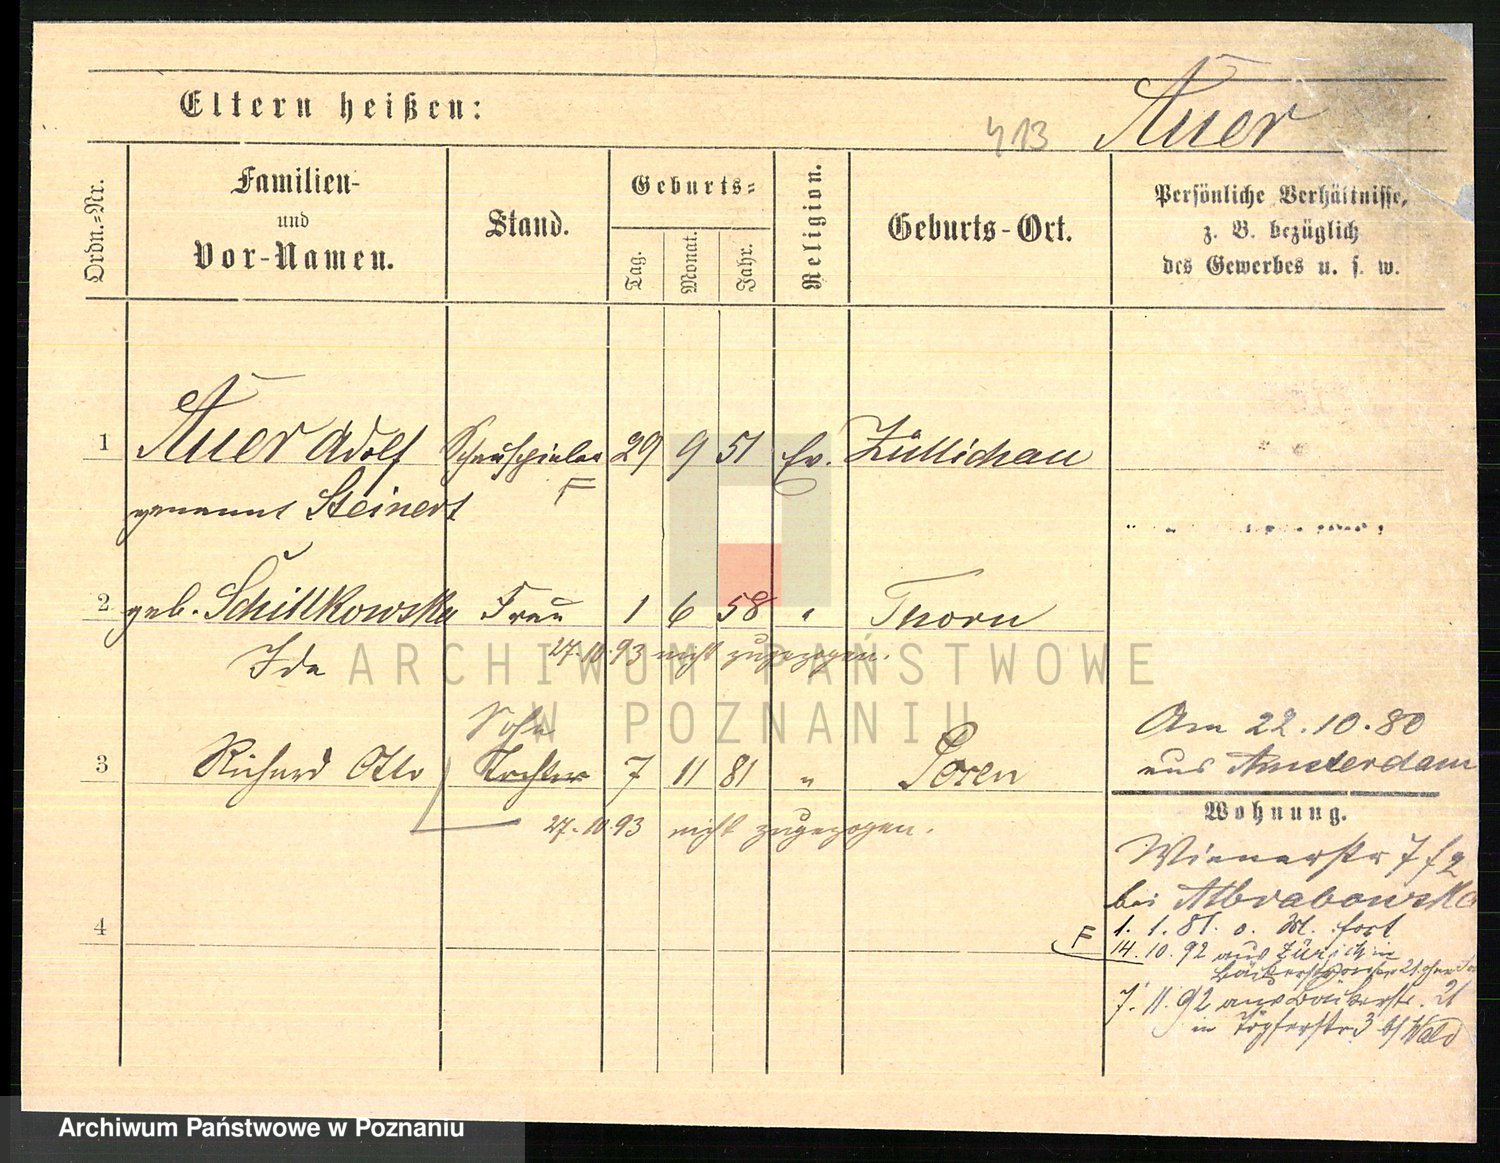 Eltern heißen:
413 Auer
Ordn.=Nr.
Familien-
und
Vor-Namen.
Stand.
Geburts=
Tag.
Monat.
Jahr.
Religion.
Geburts-Ort.
Persönliche Verhältnisse,
z. B. bezüglich
des Gewerbes u. s. w.
1 Auer Adolf Schauspieler 29 9 51 Ev. Züllichau
F
genannt Steinert
2 geb. Schillkowska Frau 1 6 58 " Thorn
Ida 27.10.93 nicht zugezogen.
Sohn
3 Richard Otto Tochter 7 11 81 " Posen
27.10.93 nicht zugezogen.
Am 22.10.80
aus Amsterdam
Wohnung.
Wienerstr 7 f 2
bei
1. 1. 81. o. M. fort
F 14. 10. 92 aus Zürich in
7. 11. 92 aus Bäckerstr. 21
in Töpferstr 3 b/ Wald
4
ARCHIWUM PAŃSTWOWE
W POZNANIU
Archiwum Państwowe w Poznaniu